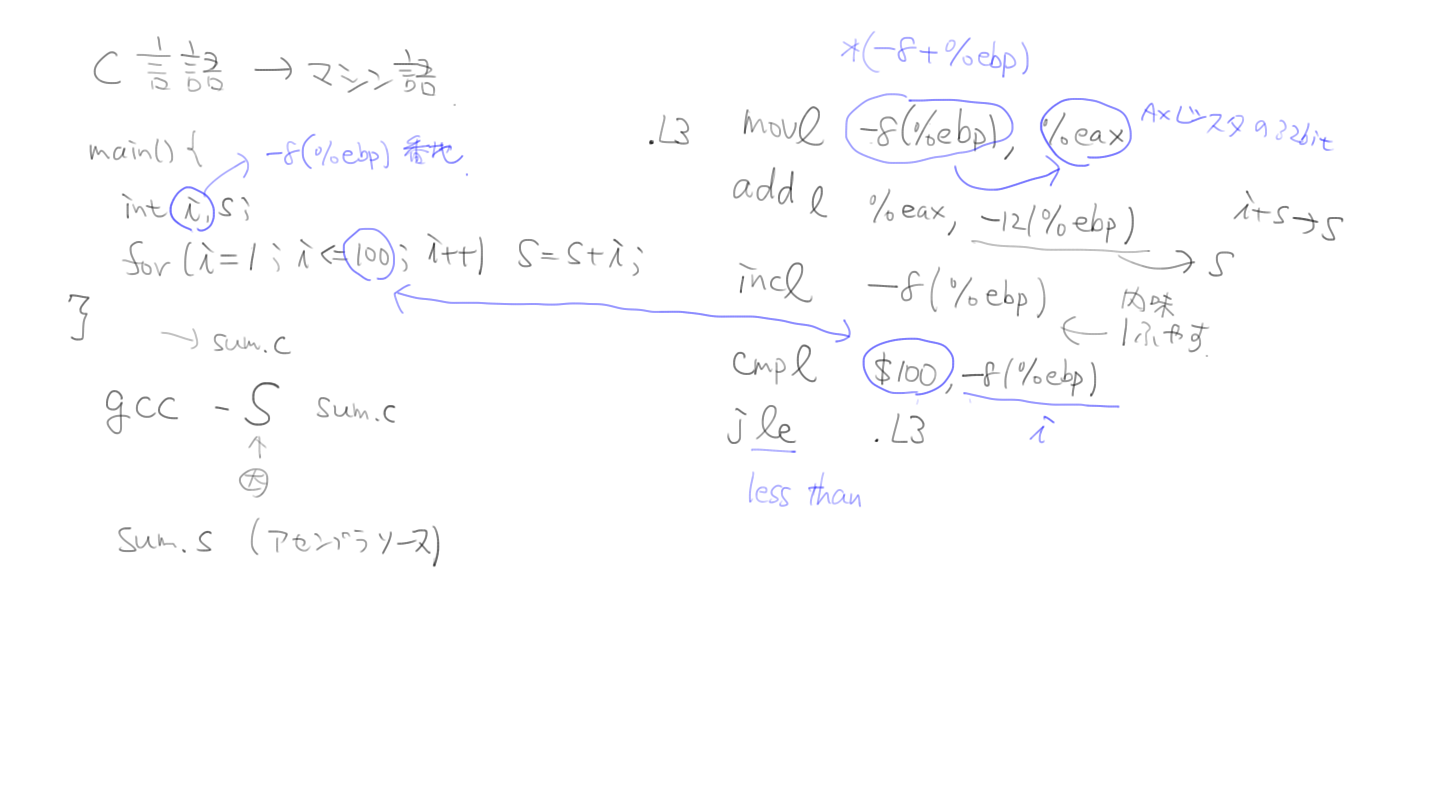 C言語 → マシン語
main() {
-8(%ebp) 番地
int i, s;
for (i=1; i<=100; i++) s=s+i;
}
→ sum.c
gcc -S sum.c
↑
大
sum.s (アセンブラソース)
*(-8+%ebp)
.L3 movl -8(%ebp), %eax
AXレジスタの32bit
addl %eax, -12(%ebp)
i+s→s
s
incl -8(%ebp)
内味
← 1ふやす
cmpl $100, -8(%ebp)
jle .L3
i
less than